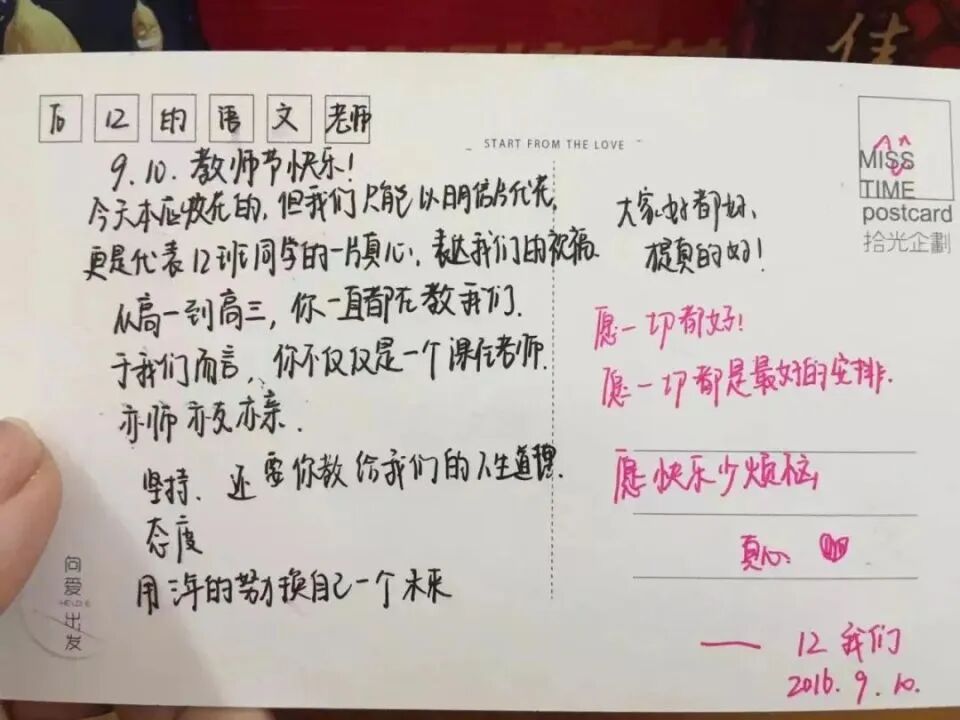 To 12 的 语 文 老师
9.10. 教师节快乐!
今天本应放花的,但我们只能以明信片代花,
更是代表12班同学的一片真心,表达我们的祝福.
从高一到高三,你一直都在教我们.
于我们而言,你不仅仅是一个课任老师.
亦师亦友亦亲.
坚持、还要你教给我们的人生道理.
态度
用三年的努力换自己一个未来
向爱出发
START FROM THE LOVE
大家好都好、
提真的好!
愿一切都好!
愿一切都是最好的安排.
愿快乐少烦恼
真心
—— 12 我们
2016.9.10.
MISS
TIME
postcard
拾光企劃
佳